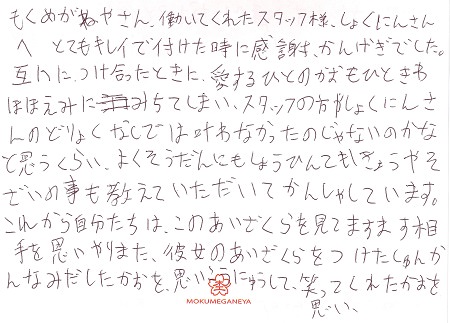 もくめがねやさん、働いてくれたスタッフ様、しょくにんさん
へ とてもキレイで付けた時に感謝、かんげきでした。
互いに、つけ合ったときに、愛するひとのかおもひときわ
ほほえみにみちてしまい、スタッフの方やしょくにんさ
んのどりょくなしでは叶わなかったのじゃないのかな
と思うくらい、よくそうだんにも しょうひんでも ぎょうやそ
ざいの事も教えていただいてかんしゃしています。
これから自分たちは、このあいざくらを見てますます相
手を思いやりまた、彼女のあいざくらをつけたしゅんか
んなみだしたかおを、思い
笑ってくれたかおを
思い、
MOKUMEGANEYA